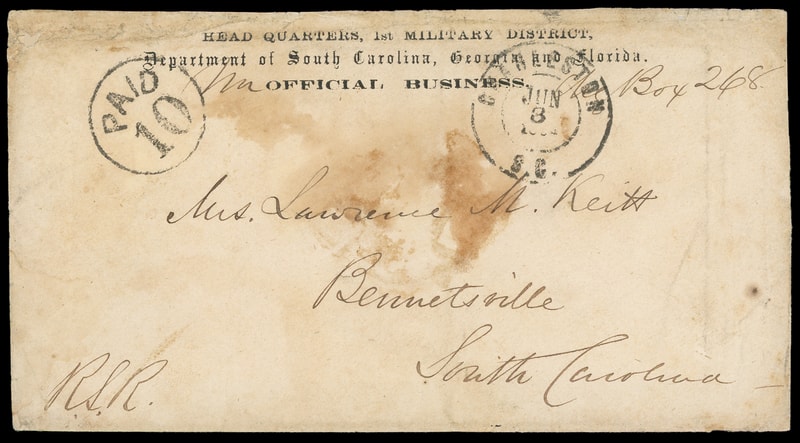 HEAD QUARTERS, 1st MILITARY DISTRICT,
Department of South Carolina, Georgia and Florida.
OFFICIAL BUSINESS.
Box 268
PAID
10
CHARLESTON
JUN
3
S.C.
Mrs. Lawrence M. Keitt
Bennetsville
South Carolina
R.S.R.